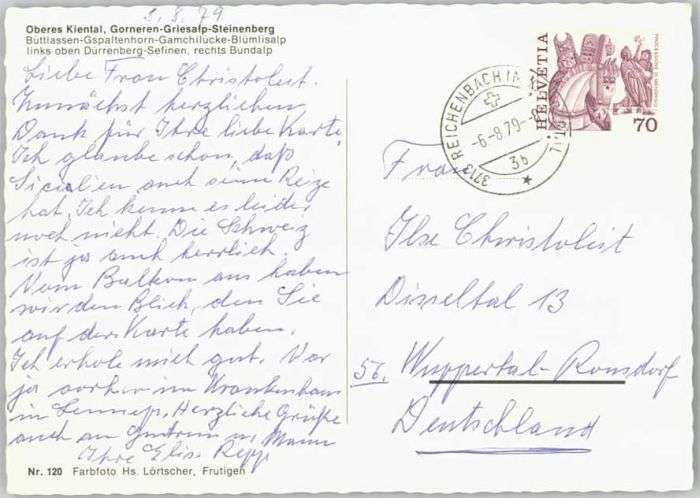 5.8.79
Oberes Kiental, Gorneren-Griesalp-Steinenberg
Büttlassen-Gspaltenhorn-Gamchilücke-Blümlisalp
links oben Dürrenberg-Sefinen, rechts Bundalp
Liebe Frau Christoleit.
Zunächst herzlichen
Dank für Ihre liebe Karte
Ich glaube schon, daß
Sizialien auch seine Reize
hat. Ich kenne es leider
noch nicht. Die Schweiz
ist ja auch herrlich.
Vom Balkon aus haben
wir den Blick, den Sie
auf der Karte haben.
Ich erhole mich gut. War
ja vorher im Krankenhaus
in Lennep. Herzliche Grüße
auch an u. Mann
Ihre Elis. Repp
Nr. 120 Farbfoto Hs. Lörtscher, Frutigen
3713 REICHENBACH IM
-6.-8.79-
3b
HELVETIA
70
Frau
Ilse Christoleit
Disseltal 13
56. Wuppertal-Ronsdorf
Deutschland